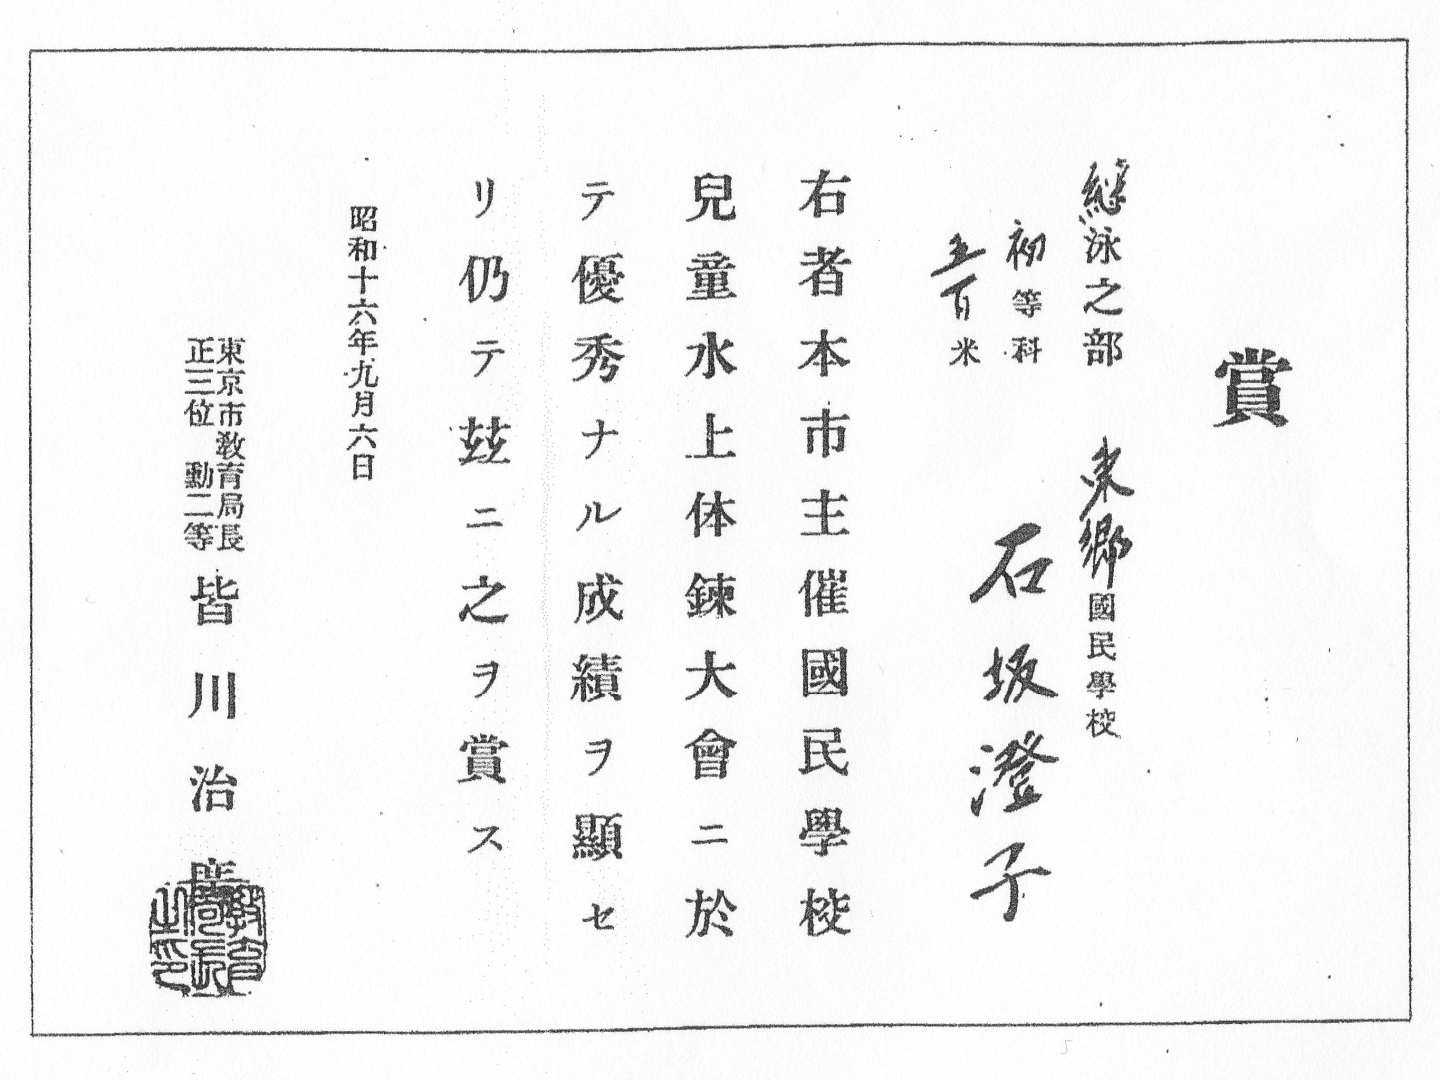 賞
継泳之部 東郷國民學校
初等科
五百米
石坂澄子
右者本市主催國民學校
兒童水上体鍊大會ニ於
テ優秀ナル成績ヲ顯セ
リ仍テ茲ニ之ヲ賞ス
昭和十六年九月六日
東京市敎育局長
正三位 勳二等
皆川治廣
敎育局長之印